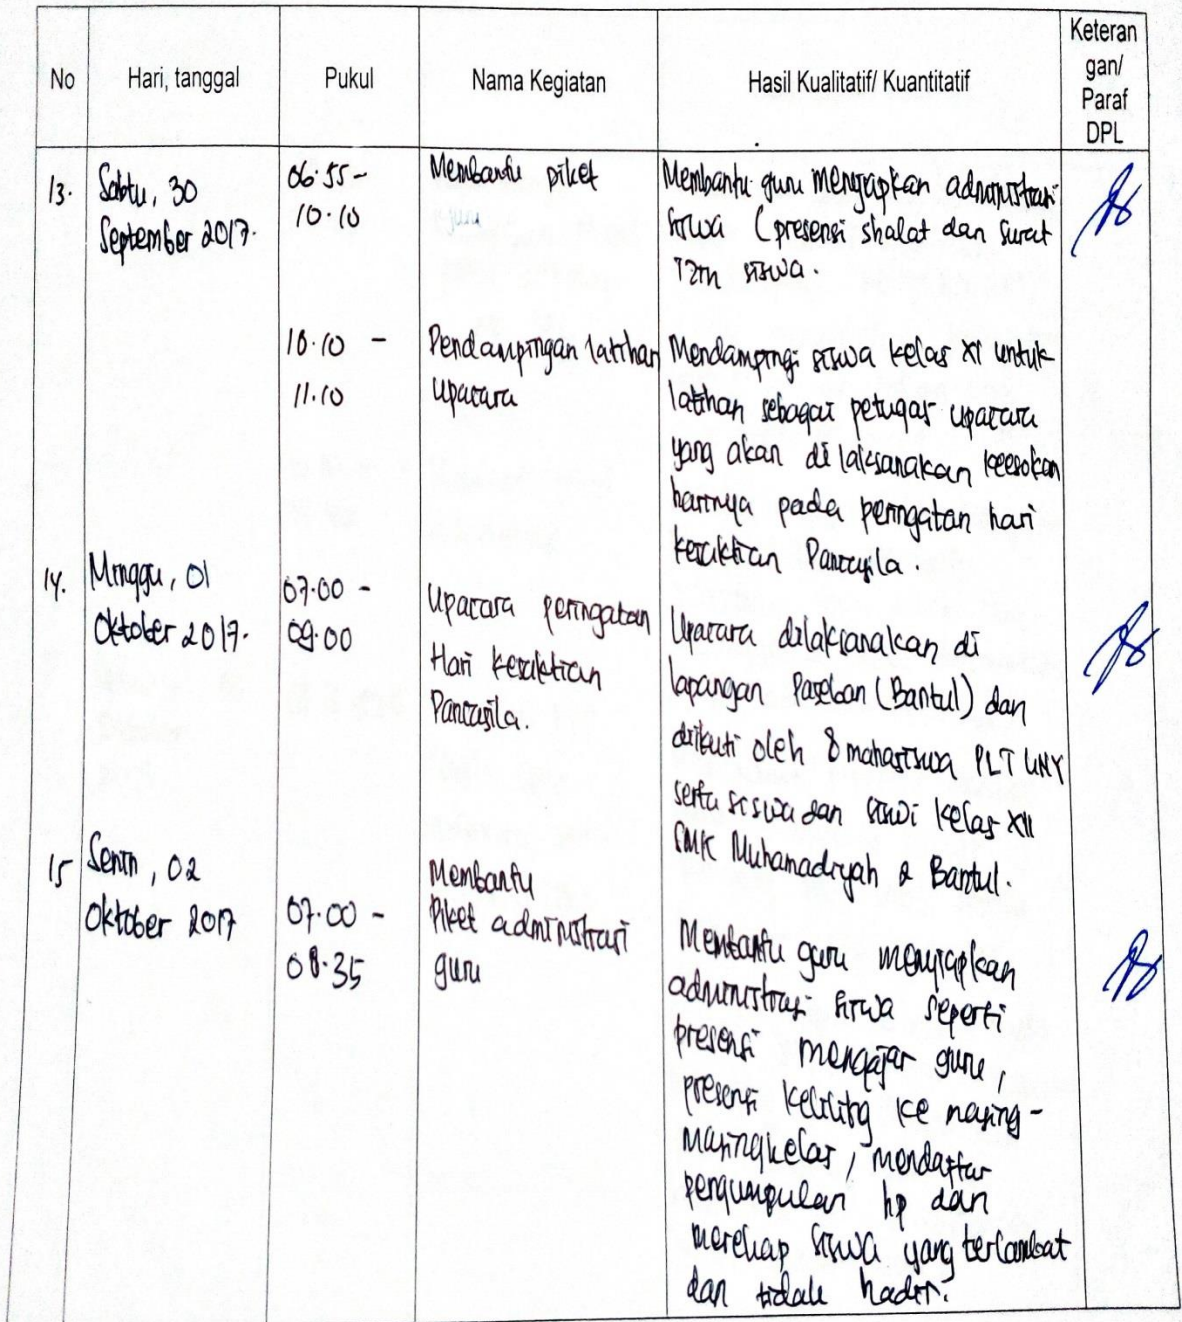 No
Hari, tanggal
Pukul
Nama Kegiatan
Hasil Kualitatif/ Kuantitatif
Keteran
gan/
Paraf
DPL
13.
Sabtu, 30
September 2017.
06.55-
10.10
Membantu piket
Membantu guru menyiapkan administrasi
siswa (presensi shalat dan surat
izin siswa.
10.10 -
11.10
Pendampingan latihan
upacara
Mendampingi siswa kelas XI untuk
latihan sebagai petugas upacara
yang akan di laksanakan keesokan
harinya pada peringatan hari
kesaktian Pancasila.
14.
Minggu, 01
Oktober 2017.
07.00 -
09.00
Upacara peringatan
Hari kesaktian
Pancasila.
Upacara dilaksanakan di
lapangan Paseban (Bantul) dan
diikuti oleh 8 mahasiswa PLT UNY
serta siswa dan siswi kelas XII
SMK Muhamadiyah 2 Bantul.
15
Senin, 02
Oktober 2017
07.00 -
08.35
Membantu
Piket administrasi
guru
Membantu guru menyiapkan
administrasi siswa seperti
presensi mengajar guru,
presensi keliling ke masing-
masing kelas, mendaftar
pengumpulan hp dan
merekap siswa yang terlambat
dan tidak hadir.